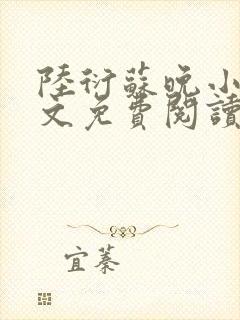 陸衍蘇晚小
文免費閱讀
宜蓁